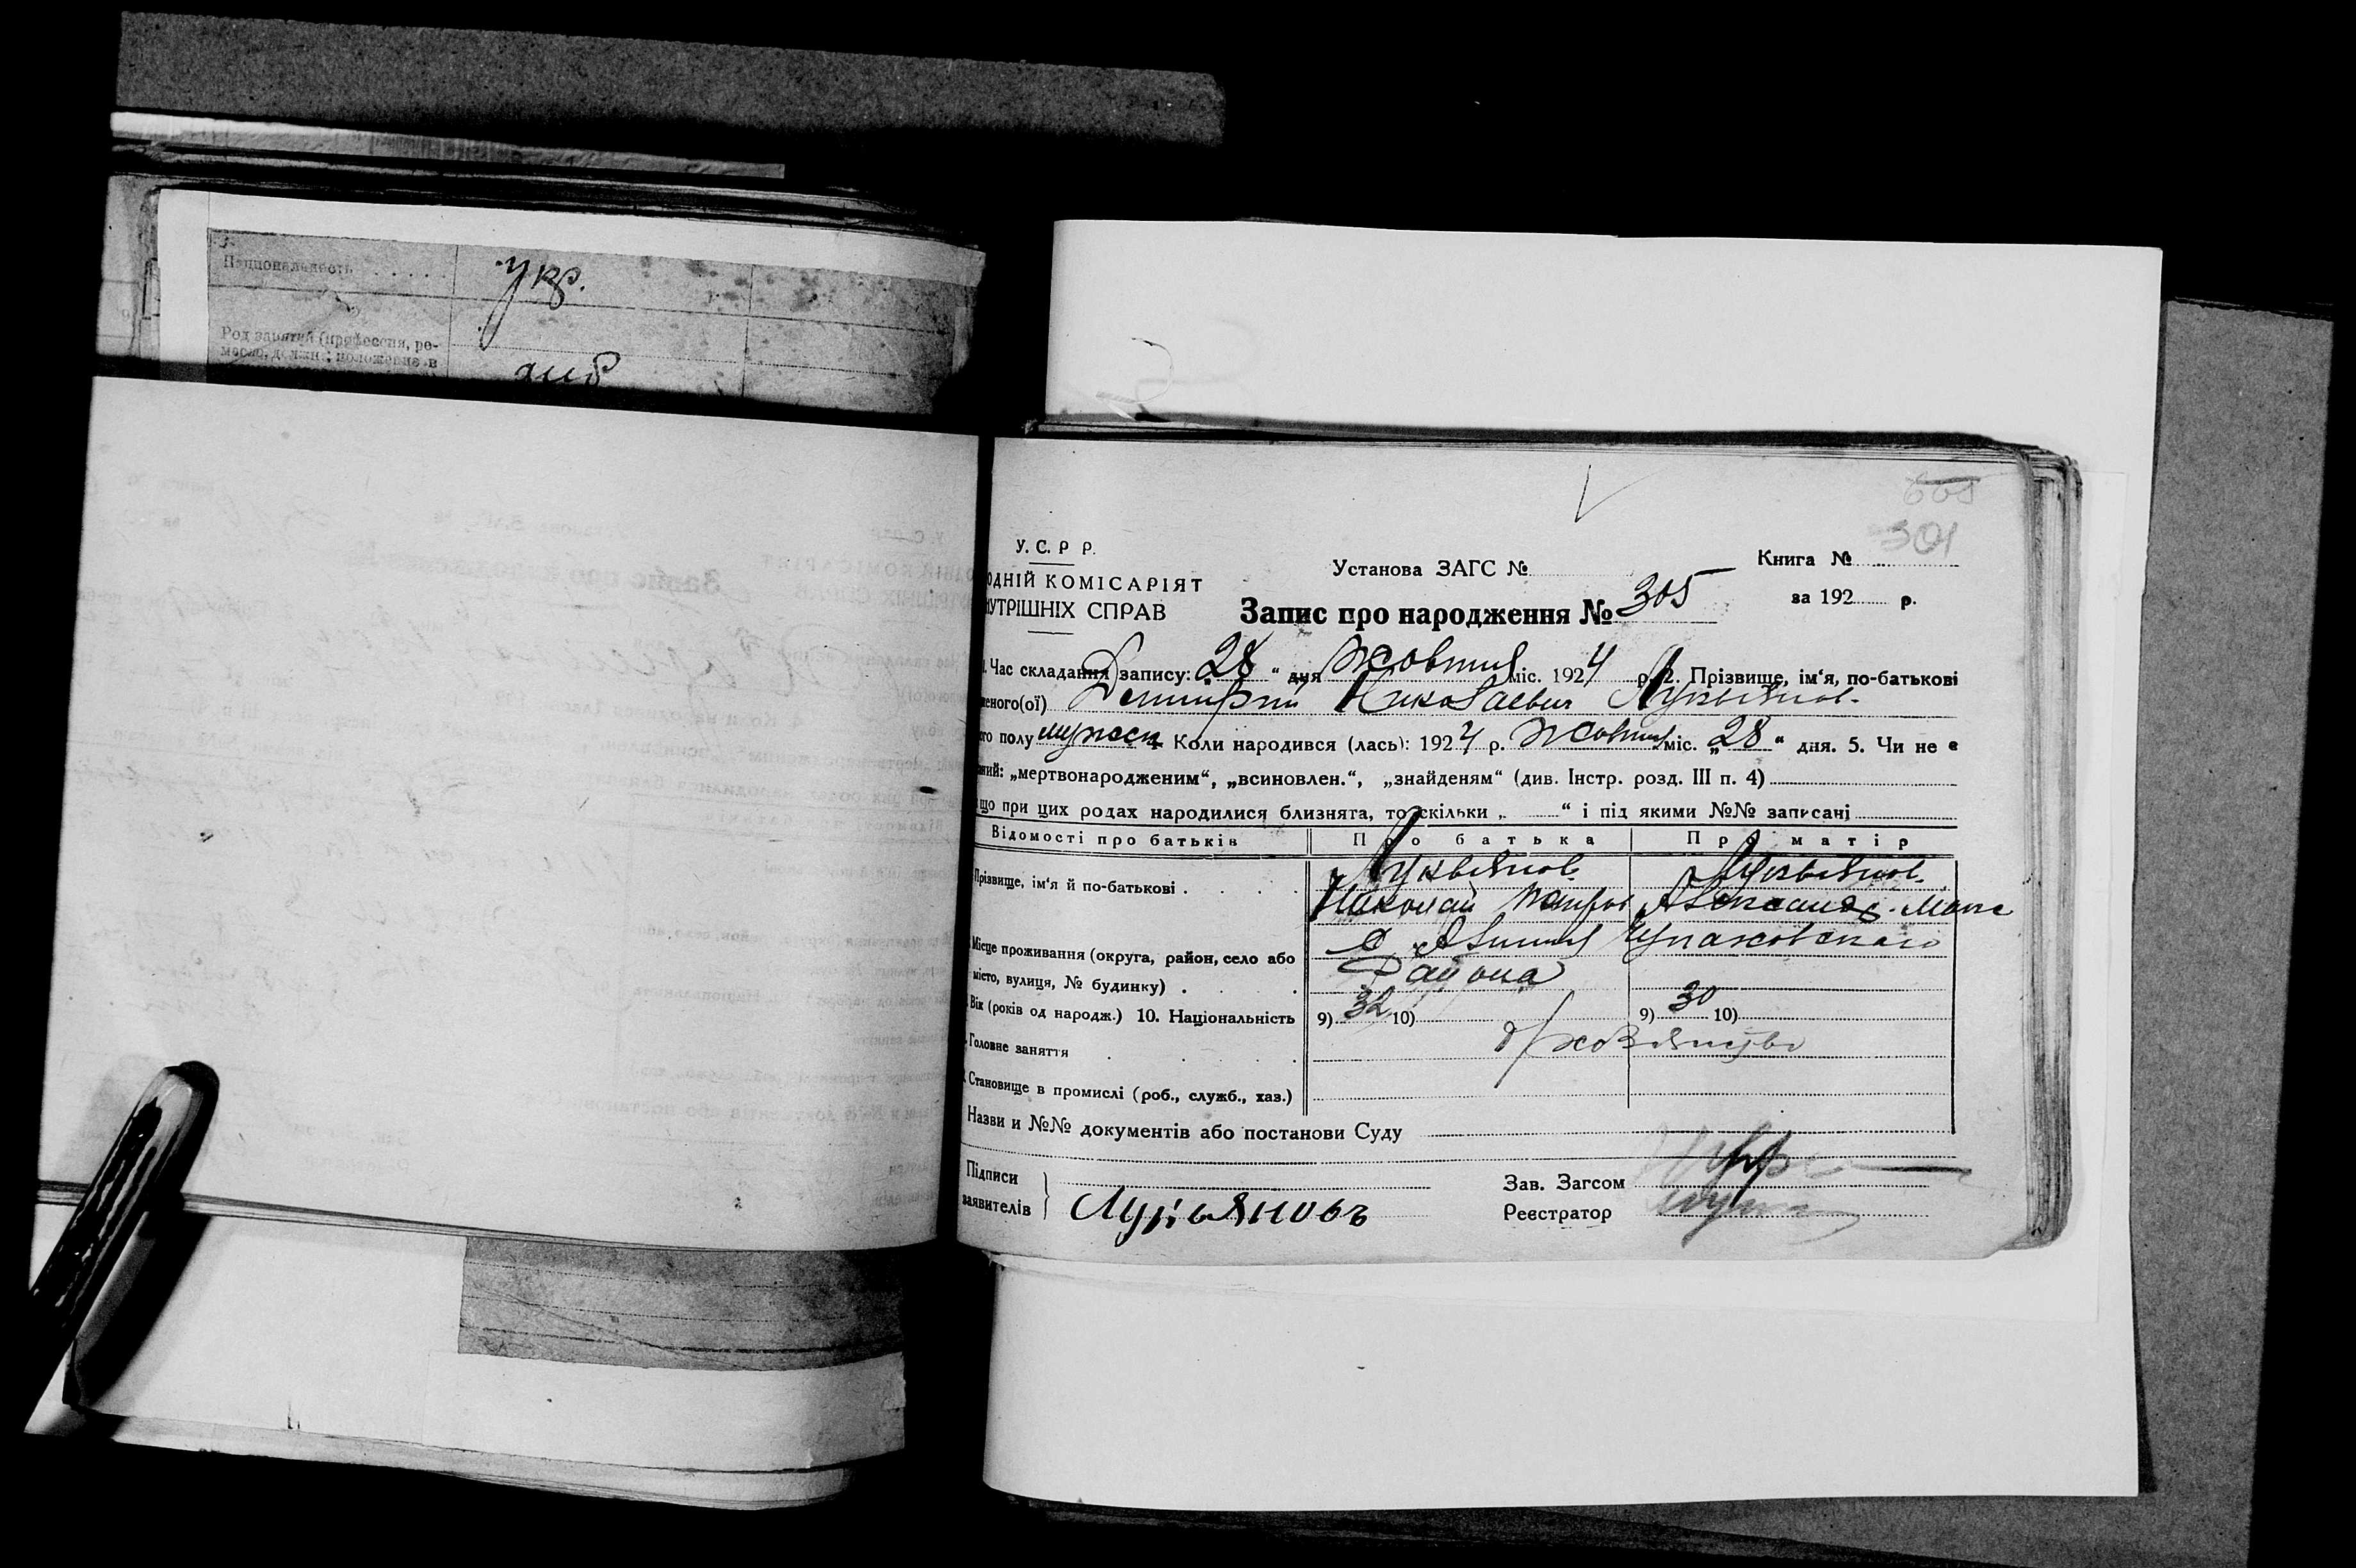 Национальность . . . . .
укр.
Род занятий (профессия, ре-
месло, должн.; положение в
У. С. Р Р.
ОДНІЙ КОМІСАРІЯТ
НУТРІШНІХ СПРАВ
Установа ЗАГС №
Книга №
301
за 192 р.
Запис про народження № 305
1. Час складання запису: „28“ дня Жовтня міс. 1924 р. 2. Прізвище, ім'я, по-батькові
неного(ої) Дмитрий Николаевич Лукьянов.
го полу мужеск 4. Коли народився (лась): 1924 р. жовтня міс. „28“ дня. 5. Чи не є
ний: „мертвонародженим“, „всиновлен.“, „знайденям“ (див. Інстр. розд. III п. 4)
що при цих родах народилися близнята, то скільки „ “ і під якими №№ записані
Відомості про батьків Про батька Про матір
Прізвище, ім'я й по-батькові . . . . Лукьянов. Лукьянов.
Николай Александ.
Місце проживання (округа, район, село або
місто, вулиця, № будинку) . . . Района
Вік (років од народж.) 10. Національність 9) 32 10) 9) 30 10)
Головне заняття . . . д/хозяйство
Становище в промислі (роб., служб., хаз.)
Назви и №№ документів або постанови Суду
Підписи
заявителів
Лукьяновъ
Зав. Загсом
Реєстратор